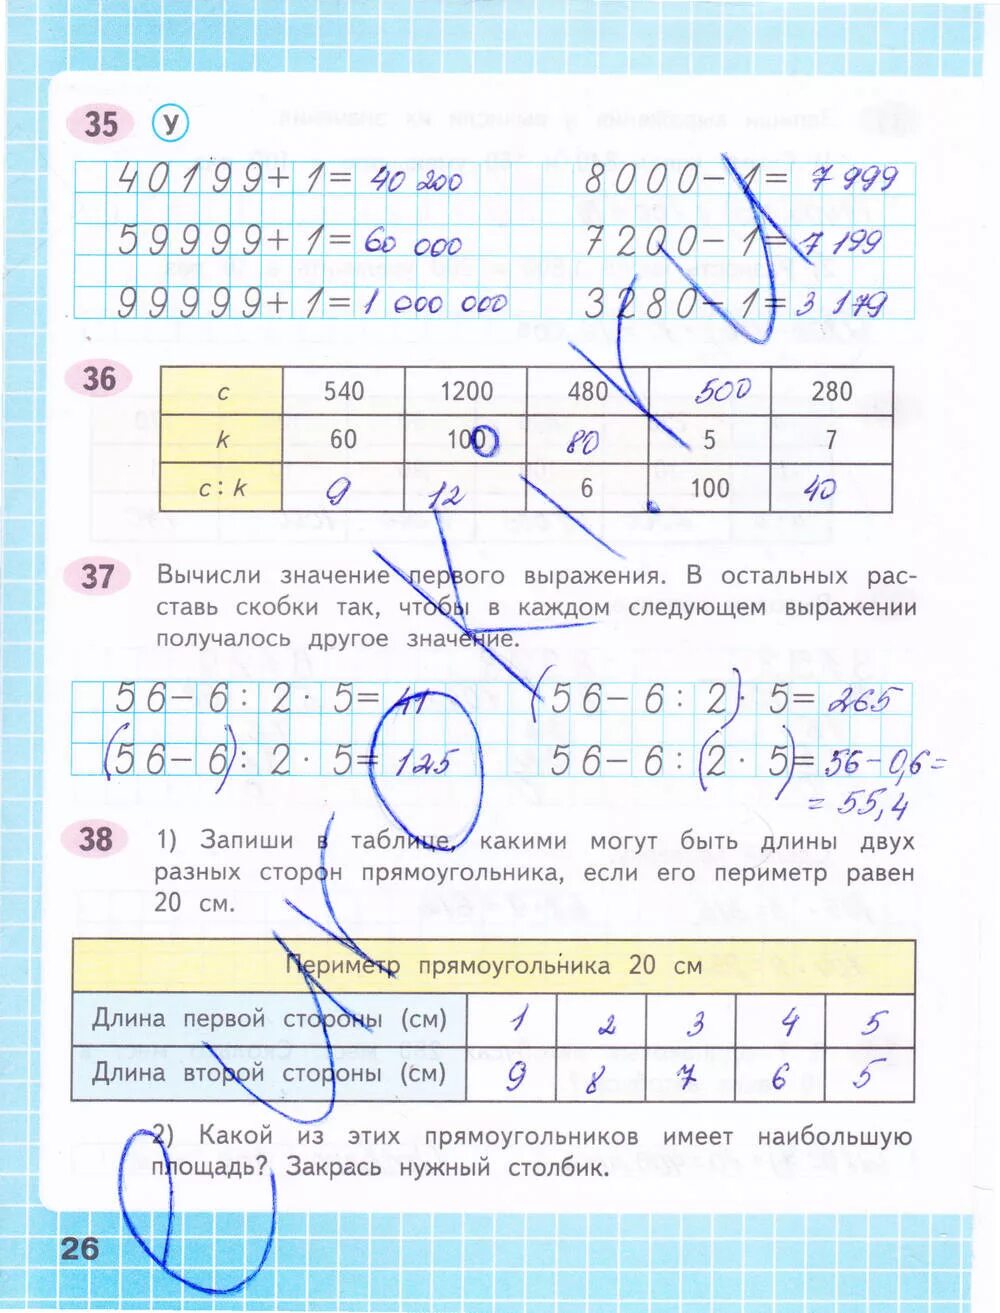 35 У
40199+1= 40 200 8000-1= 7 999
59999+1= 60 000 7200-1= 7 199
99999+1= 1 000 000 3280-1= 3 179
36
c 540 1200 480 500 280
k 60 100 80 5 7
c : k 9 12 6 100 40
37 Вычисли значение первого выражения. В остальных рас-
ставь скобки так, чтобы в каждом следующем выражении
получалось другое значение.
56-6:2·5= 41 (56-6:2)·5= 265
(56-6):2·5= 125 56-6:(2·5)= 56-0,6=
= 55,4
38 1) Запиши в таблице, какими могут быть длины двух
разных сторон прямоугольника, если его периметр равен
20 см.
Периметр прямоугольника 20 см
Длина первой стороны (см) 1 2 3 4 5
Длина второй стороны (см) 9 8 7 6 5
2) Какой из этих прямоугольников имеет наибольшую
площадь? Закрась нужный столбик.
26